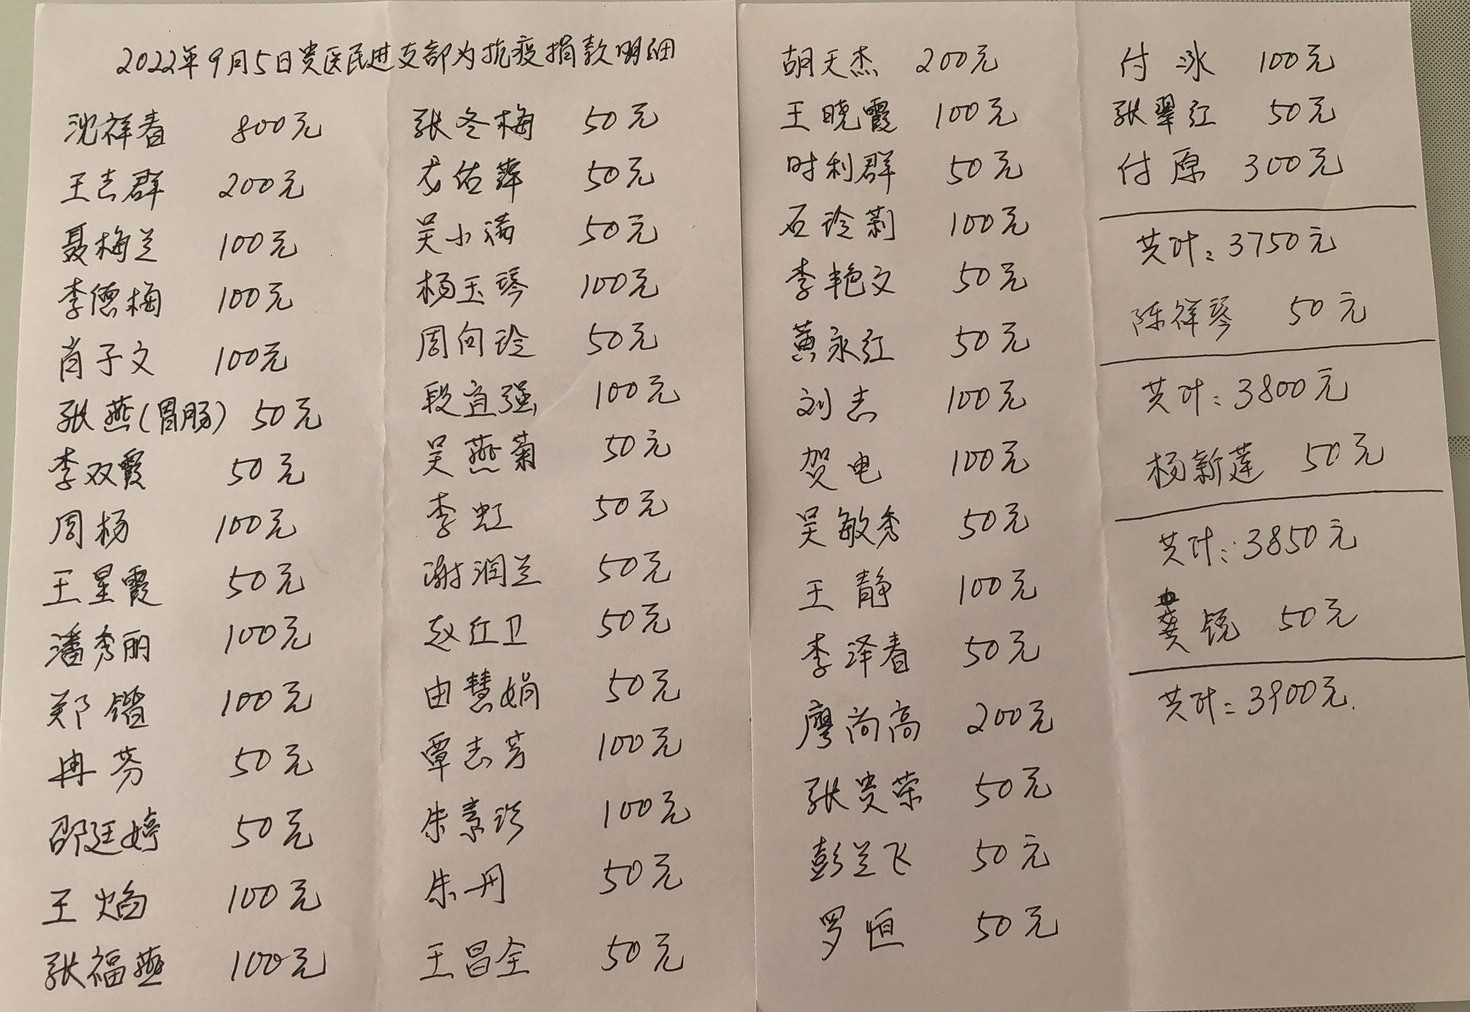 2022年9月5日贵医民进支部为抗疫捐款明细
沈祥春 800元
王志群 200元
聂梅兰 100元
李德梅 100元
肖子文 100元
张燕(胃肠) 50元
李双霞 50元
周杨 100元
王星霞 50元
潘秀丽 100元
郑锴 100元
冉芬 50元
邵廷婷 50元
王焰 100元
张福燕 100元
张冬梅 50元
尤佑萍 50元
吴小满 50元
杨玉琴 100元
周向玲 50元
段宜强 100元
吴燕菊 50元
李虹 50元
谢润兰 50元
赵红卫 50元
由慧娟 50元
覃志芳 100元
朱素珍 100元
朱丹 50元
王昌全 50元
胡天杰 200元
王晓霞 100元
时利群 50元
石玲莉 100元
李艳文 50元
黄永红 50元
刘志 100元
贺电 100元
吴敏秀 50元
王静 100元
李泽春 50元
廖尚高 200元
张贵荣 50元
彭兰飞 50元
罗恒 50元
付冰 100元
张翠红 50元
付原 300元
共计:3750元
陈祥琴 50元
共计:3800元
杨新莲 50元
共计:3850元
龚锐 50元
共计:3900元.